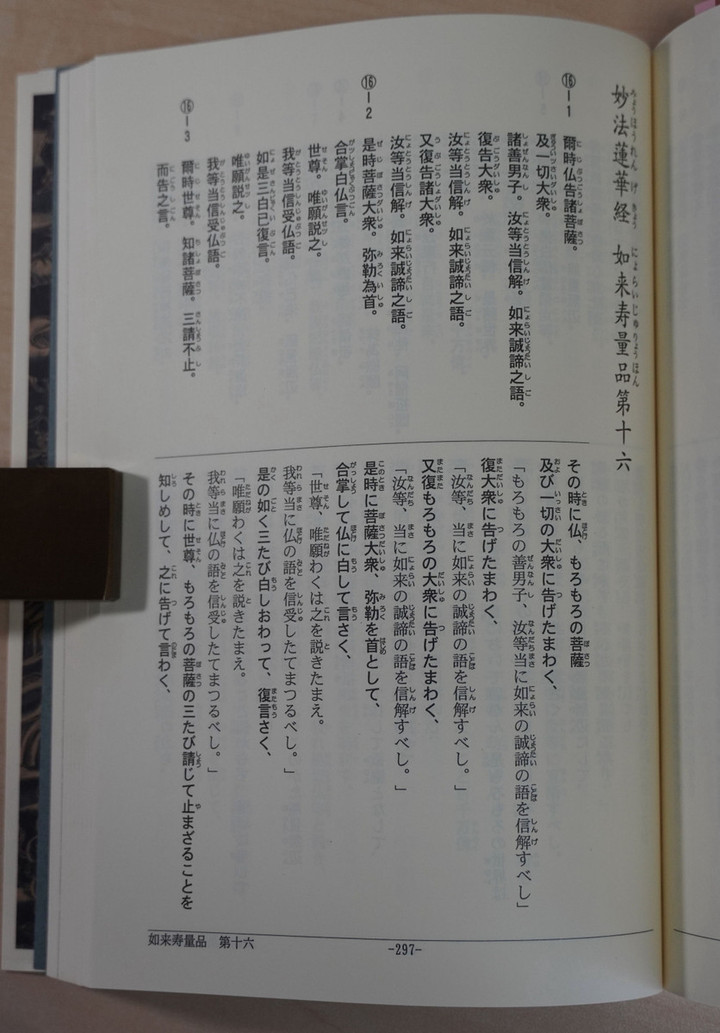 妙法蓮華経 如来寿量品第十六
⑯-1
爾時仏告諸菩薩。
及一切大衆。
諸善男子。汝等当信解。如来誠諦之語。
復告大衆。
汝等当信解。如来誠諦之語。
又復告諸大衆。
汝等当信解。如来誠諦之語。
⑯-2
是時菩薩大衆。弥勒為首。
合掌白仏言。
世尊。唯願説之。
我等当信受仏語。
如是三白已復言。
唯願説之。
我等当信受仏語。
⑯-3
爾時世尊。知諸菩薩。三請不止。
而告之言。
その時に仏、もろもろの菩薩
及び一切の大衆に告げたまわく、
「もろもろの善男子、汝等当に如来の誠諦の語を信解すべし」
復大衆に告げたまわく、
「汝等、当に如来の誠諦の語を信解すべし。」
又復もろもろの大衆に告げたまわく、
「汝等、当に如来の誠諦の語を信解すべし。」
是時に菩薩大衆、弥勒を首として、
合掌して仏に白して言さく、
「世尊、唯願わくは之を説きたまえ。
我等当に仏の語を信受したてまつるべし。」
是の如く三たび白しおわって、復言さく、
「唯願わくは之を説きたまえ。
我等当に仏の語を信受したてまつるべし。」
その時に世尊、もろもろの菩薩の三たび請じて止まざることを
知しめして、之に告げて言わく、
如来寿量品 第十六
-297-